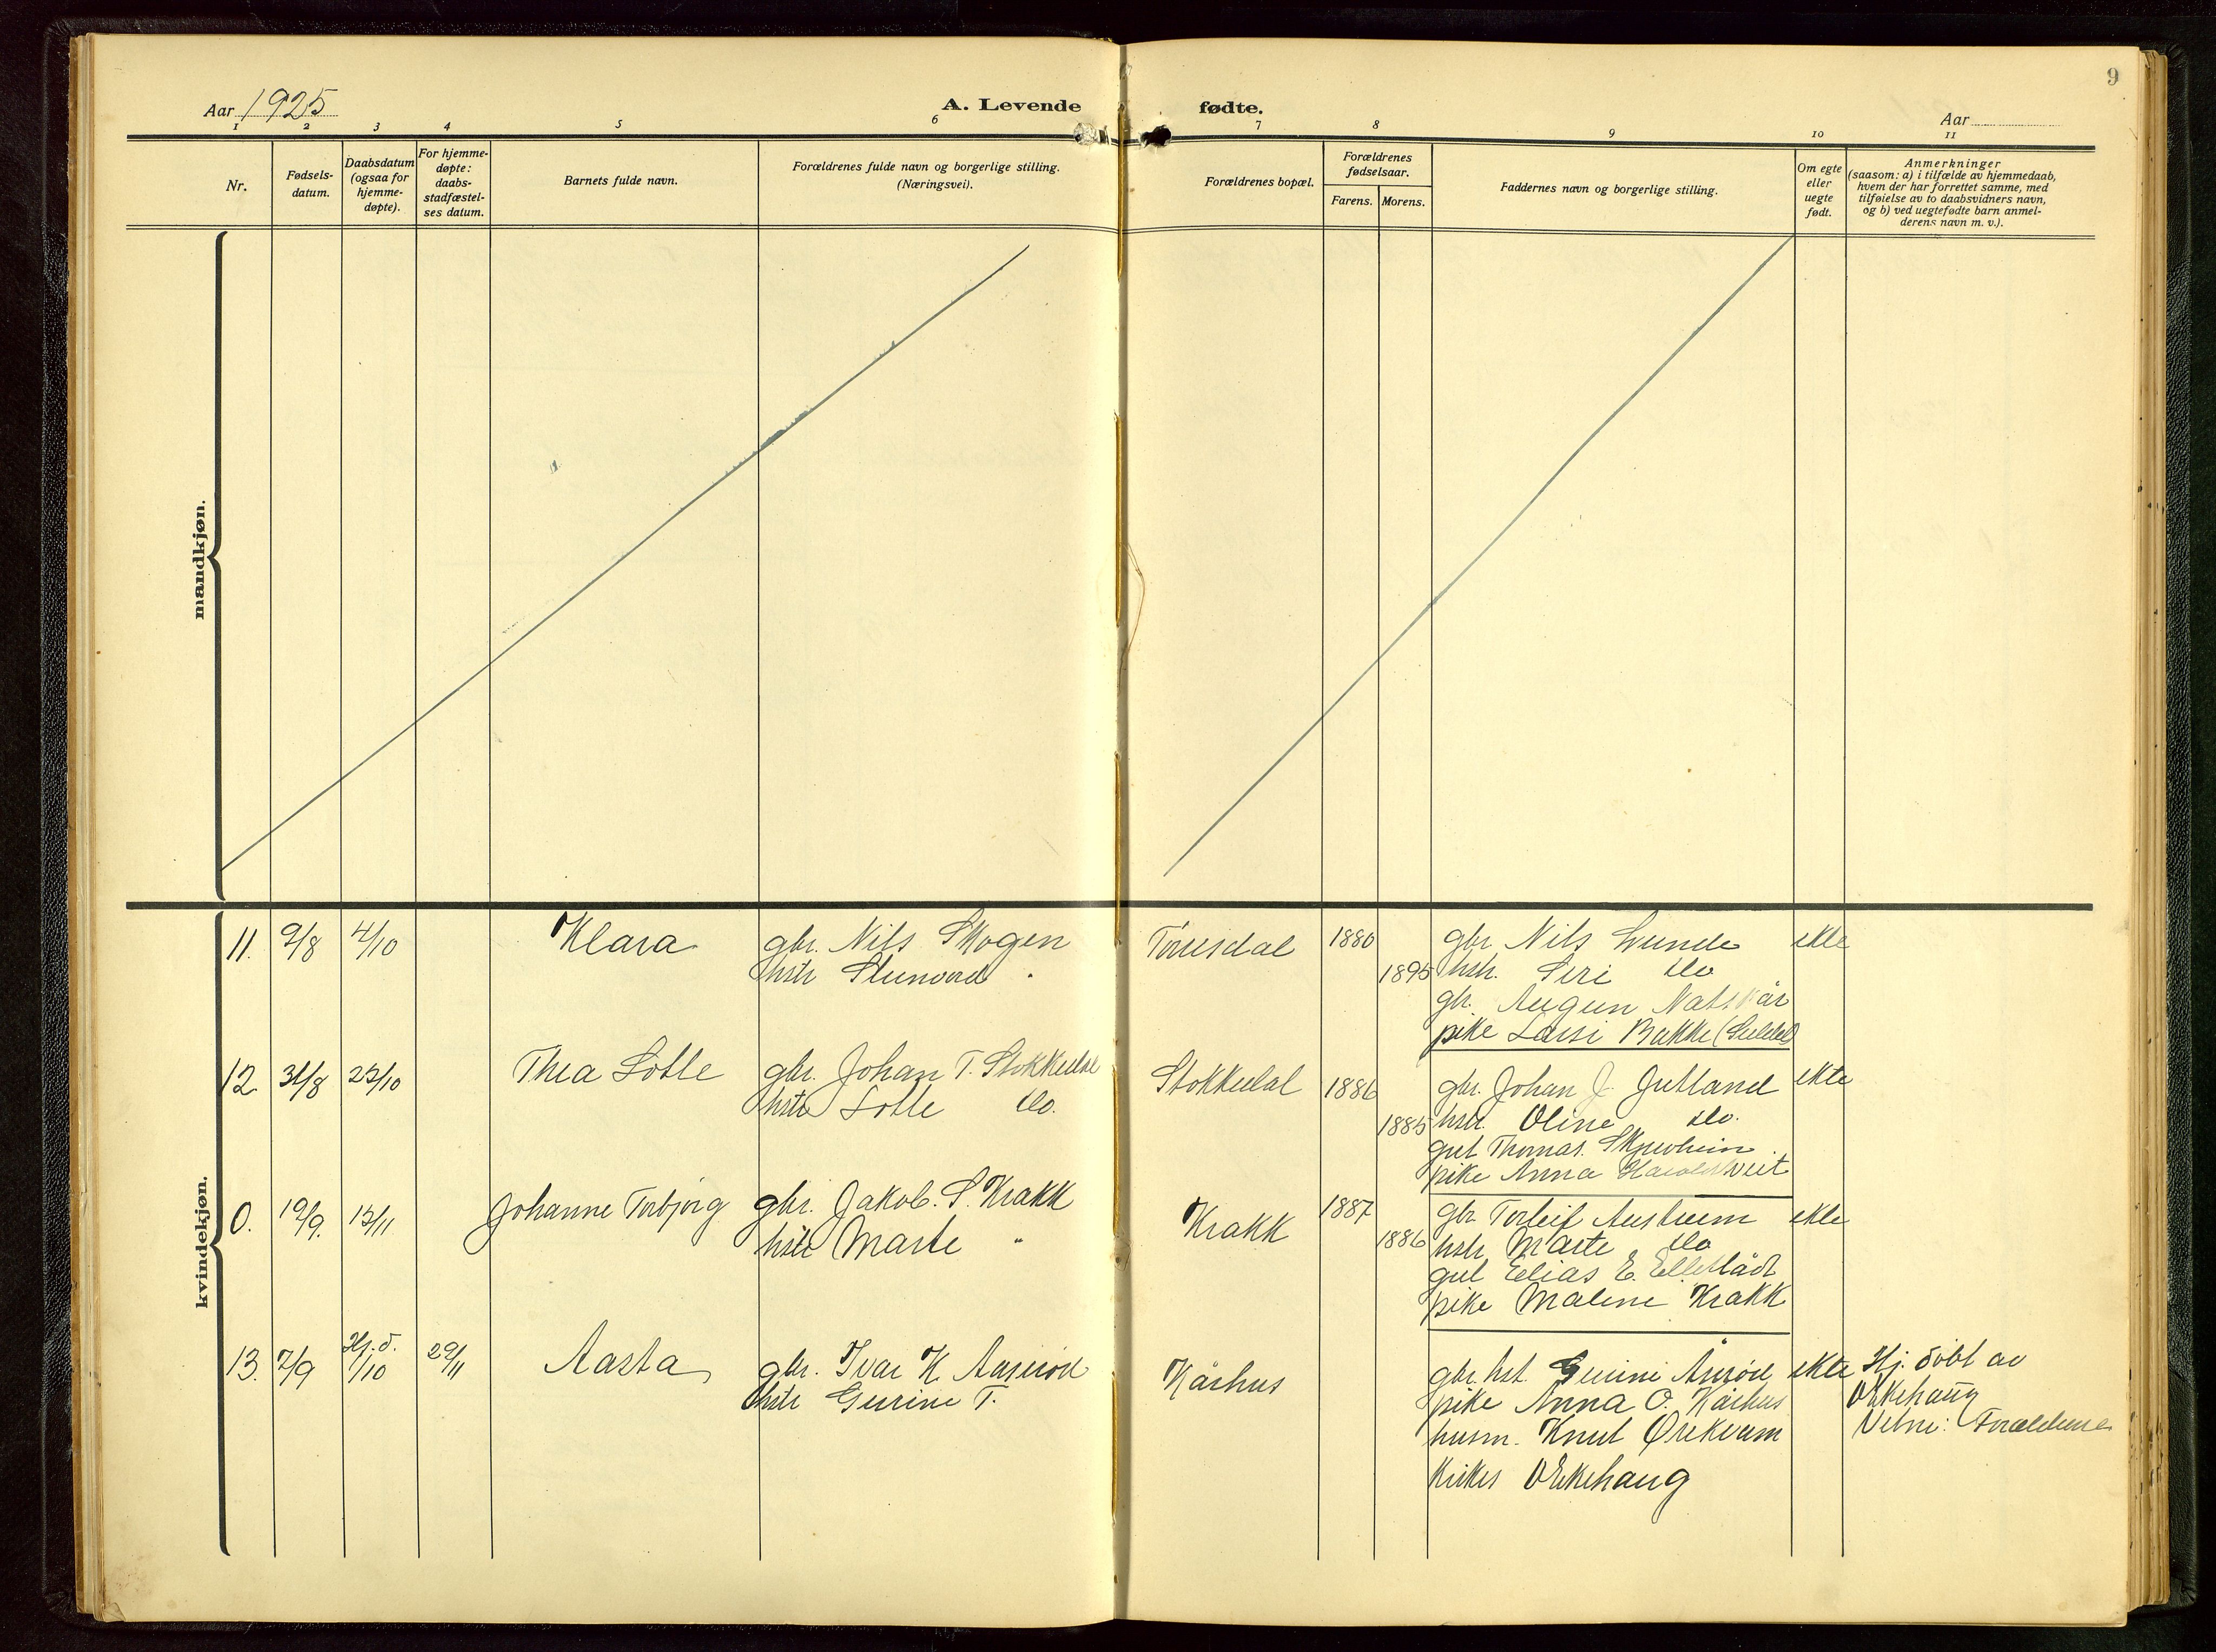 9
Aar 1925
A. Levende fødte.
Aar
1 2 3 4 5 6 7 8 9 10 11
Nr.
Fødsels-
datum.
Daabsdatum
(ogsaa for
hjemme-
døpte).
For hjemme-
døpte:
daabs-
stadfæstel-
ses datum.
Barnets fulde navn.
Forældrenes fulde navn og borgerlige stilling.
(Næringsvei).
Forældrenes bopæl.
Forældrenes
fødselsaar.
Farens. Morens.
Faddernes navn og borgerlige stilling.
Om egte
eller
uegte
født.
Anmerkninger
(saasom: a) i tilfælde av hjemmedaab,
hvem der har forrettet samme, med
tilføielse av to daabsvidners navn,
og b) ved uegtefødte barn anmel-
derens navn m. v.).
mandkjøn.
kvindekjøn.
11. 9/8 4/10 Klara gbr. Nils Skogen
hstr
Tønesdal 1880 gbr Nils Lunde ekte
1895 hstr. Siri do
gbr. Augun
pike Lassi Bakke (Suldal)
12 31/8 Thea Lotte gbr. Johan T. Stokkedal
hstr Lotte do.
Stokkedal 1886 gbr. Johan J. Jutland ekte
1885 hstr. Oline do.
gut Thomas
pike Anna
0. 19/9. 15/11 Johanne Torbjørg gbr. Jakob. S. Krakk
hstr Marte "
Krakk 1887 gbr Torleif Austrem ekte
1886 hstr Marte do
gut Elias E.
pike Malene Krakk
13. 7/9 Hj.d.
1/10 29/11 Aasta gbr. Ivar K Aaserød
hstr Gurine T.
Kårhus gbr. hst. Gurine Åsrød ekte Hj. døbt av
pike Anna O. Kårhus
husm. Knut Ørekvam Vitne: Forældrene